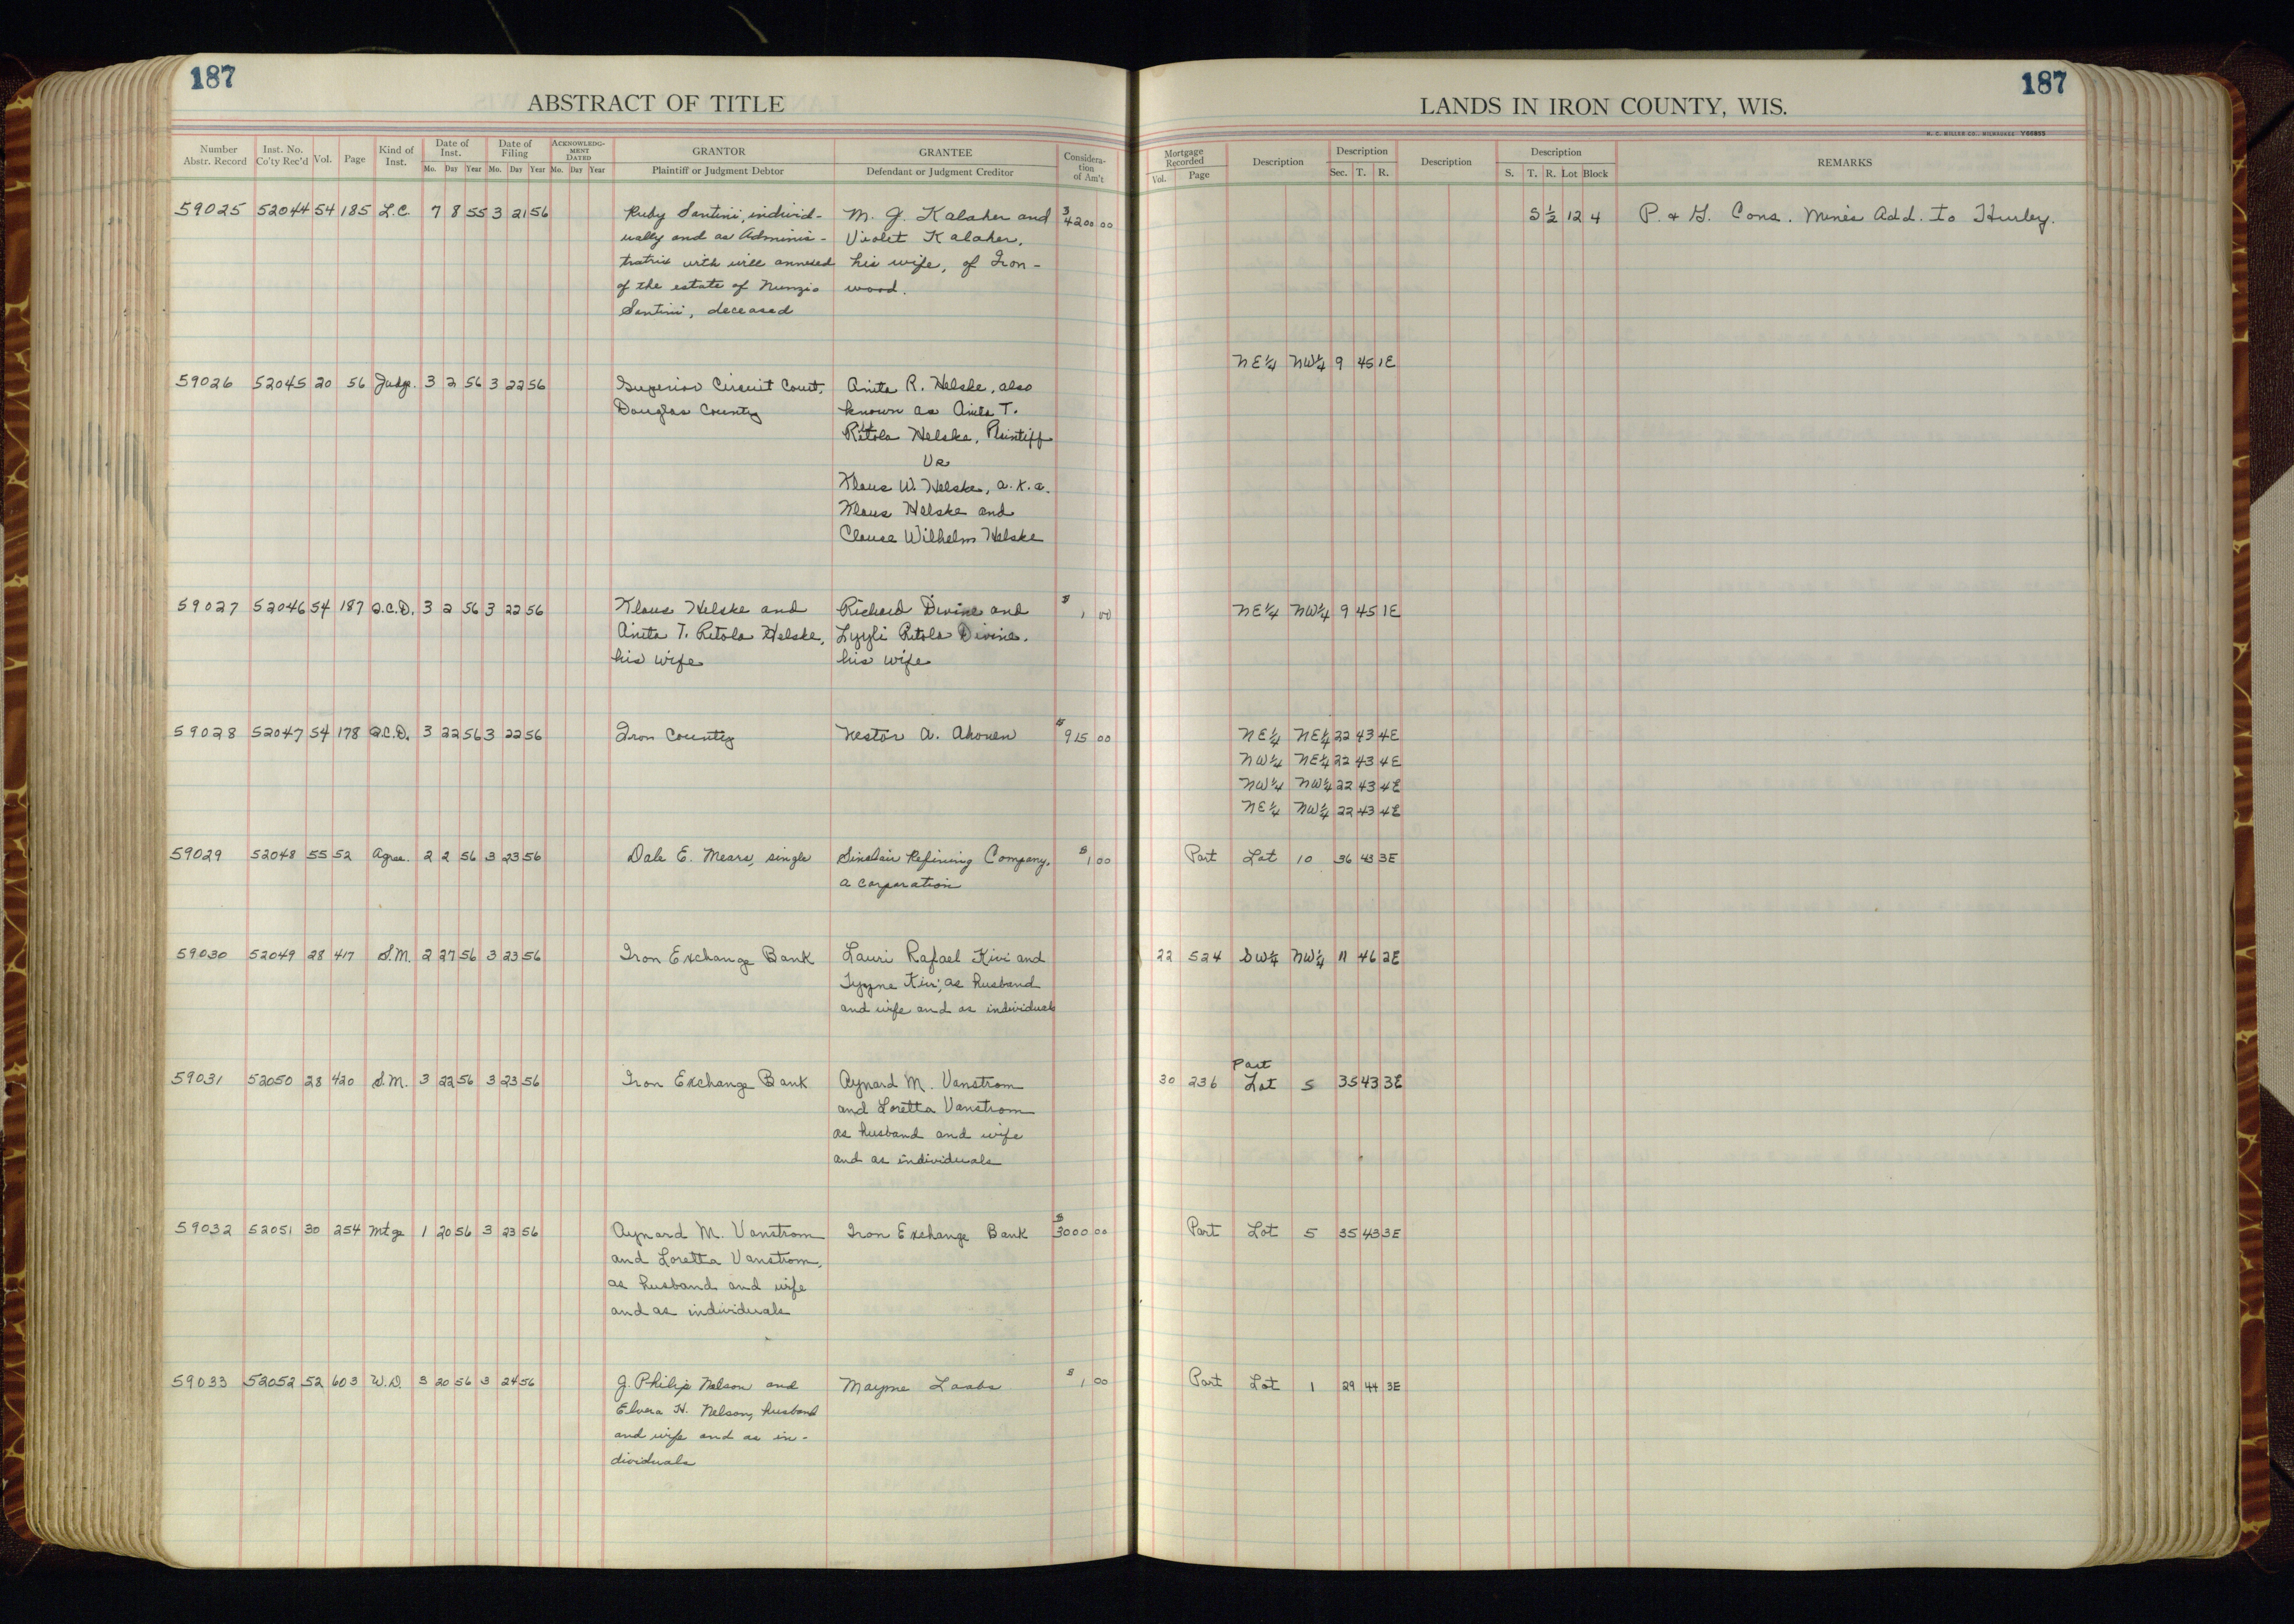 187
187
ABSTRACT OF TITLE
LANDS IN IRON COUNTY, WIS.
H. C. MILLER CO., MILWAUKEE
Number Abstr. Record Inst. No. Co'ty Rec'd Vol. Page Kind of Inst. Date of Inst. Mo. Day Year Date of Filing Mo. Day Year ACKNOWLEDGMENT DATED Mo. Day Year GRANTOR Plaintiff or Judgment Debtor GRANTEE Defendant or Judgment Creditor Consideration of Am't
Mortgage Recorded Vol. Page Description Description Sec. T. R. Description Description S. T. R. Lot Block REMARKS
59025 52044 54 185 L.C. 7 8 55 3 21 56 Ruby Santini, individ- M. J. Kalaher and $4200 00 S 1/2 12 4 P. & H. Cons. Mines Add. to Hurley.
ually and as Adminis- Violet Kalaher,
tratrix with will annexed his wife, of Iron-
of the estate of Nunzio wood.
Santini, deceased
NE 1/4 NW 1/4 9 45 1E
59026 52045 20 56 Judge. 3 2 56 3 22 56 Superior Circuit Court, Anita R. Helske, also
Douglas County known as Anita T.
Ritola Helske, Plaintiff
Vs
Klaus W. Helske, a.k.a.
Klaus Helske and
Clause Wilhelm Helske
59027 52046 54 187 Q.C.D. 3 2 56 3 22 56 Klaus Helske and Richard Divine and $1 00 NE 1/4 NW 1/4 9 45 1E
Anita T. Ritola Helske, Lyyli Ritola Divine,
his wife his wife
59028 52047 54 178 Q.C.D. 3 22 56 3 22 56 Iron County Nestor A. Ahonen $915 00 NE 1/4 NE 1/4 22 43 4E
NW 1/4 NE 1/4 22 43 4E
NW 1/4 NW 1/4 22 43 4E
NE 1/4 NW 1/4 22 43 4E
59029 52048 55 52 Agree. 2 2 56 3 23 56 Dale E. Mears, single Sinclair Refining Company, $1 00 Part Lot 10 36 43 3E
a corporation
59030 52049 28 417 S.M. 2 27 56 3 23 56 Iron Exchange Bank Lauri Rafael Kivi and 22 524 SW 1/4 NW 1/4 11 46 2E
Tyyne Kivi, as husband
and wife and as individuals
Part
59031 52050 28 420 S.M. 3 22 56 3 23 56 Iron Exchange Bank Aynard M. Vanstrom 30 236 Lot 5 35 43 3E
and Loretta Vanstrom
as husband and wife
and as individuals
59032 52051 30 254 Mtge 1 20 56 3 23 56 Aynard M. Vanstrom Iron Exchange Bank $3000 00 Part Lot 5 35 43 3E
and Loretta Vanstrom,
as husband and wife
and as individuals
59033 52052 52 603 W.D. 3 20 56 3 24 56 J. Philip Nelson and Mayme Laabs $1 00 Part Lot 1 29 44 3E
Elvera H. Nelson, husband
and wife and as in-
dividuals